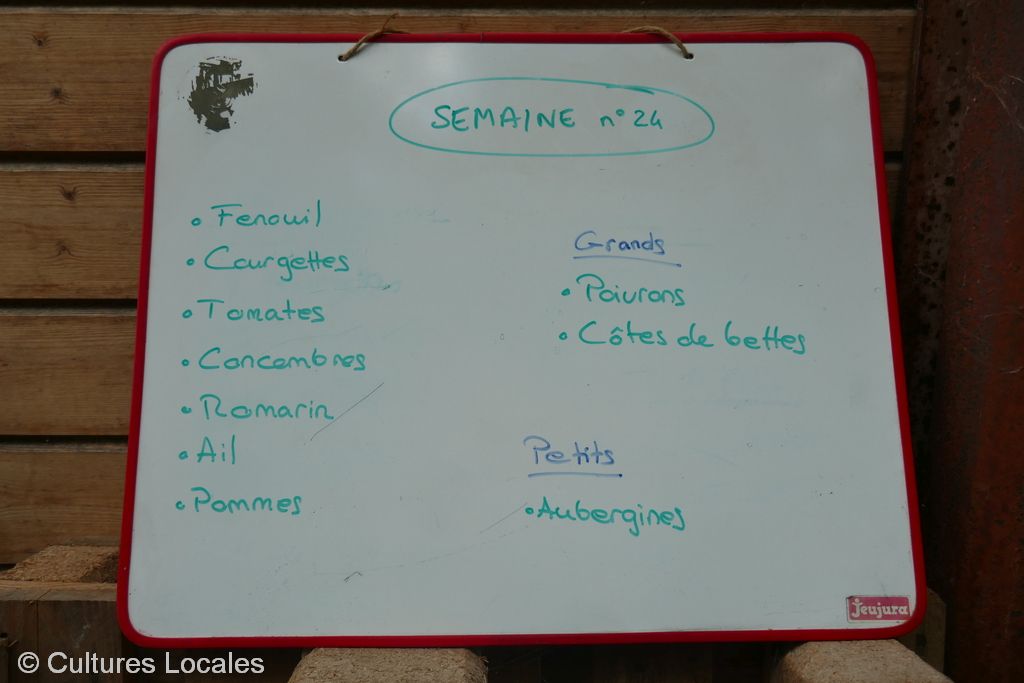 SEMAINE n° 24
• Fenouil
• Courgettes
• Tomates
• Concombres
• Romarin
• Ail
• Pommes
Grands
• Poivrons
• Côtes de bettes
Petits
• Aubergines
Jeujura
© Cultures Locales